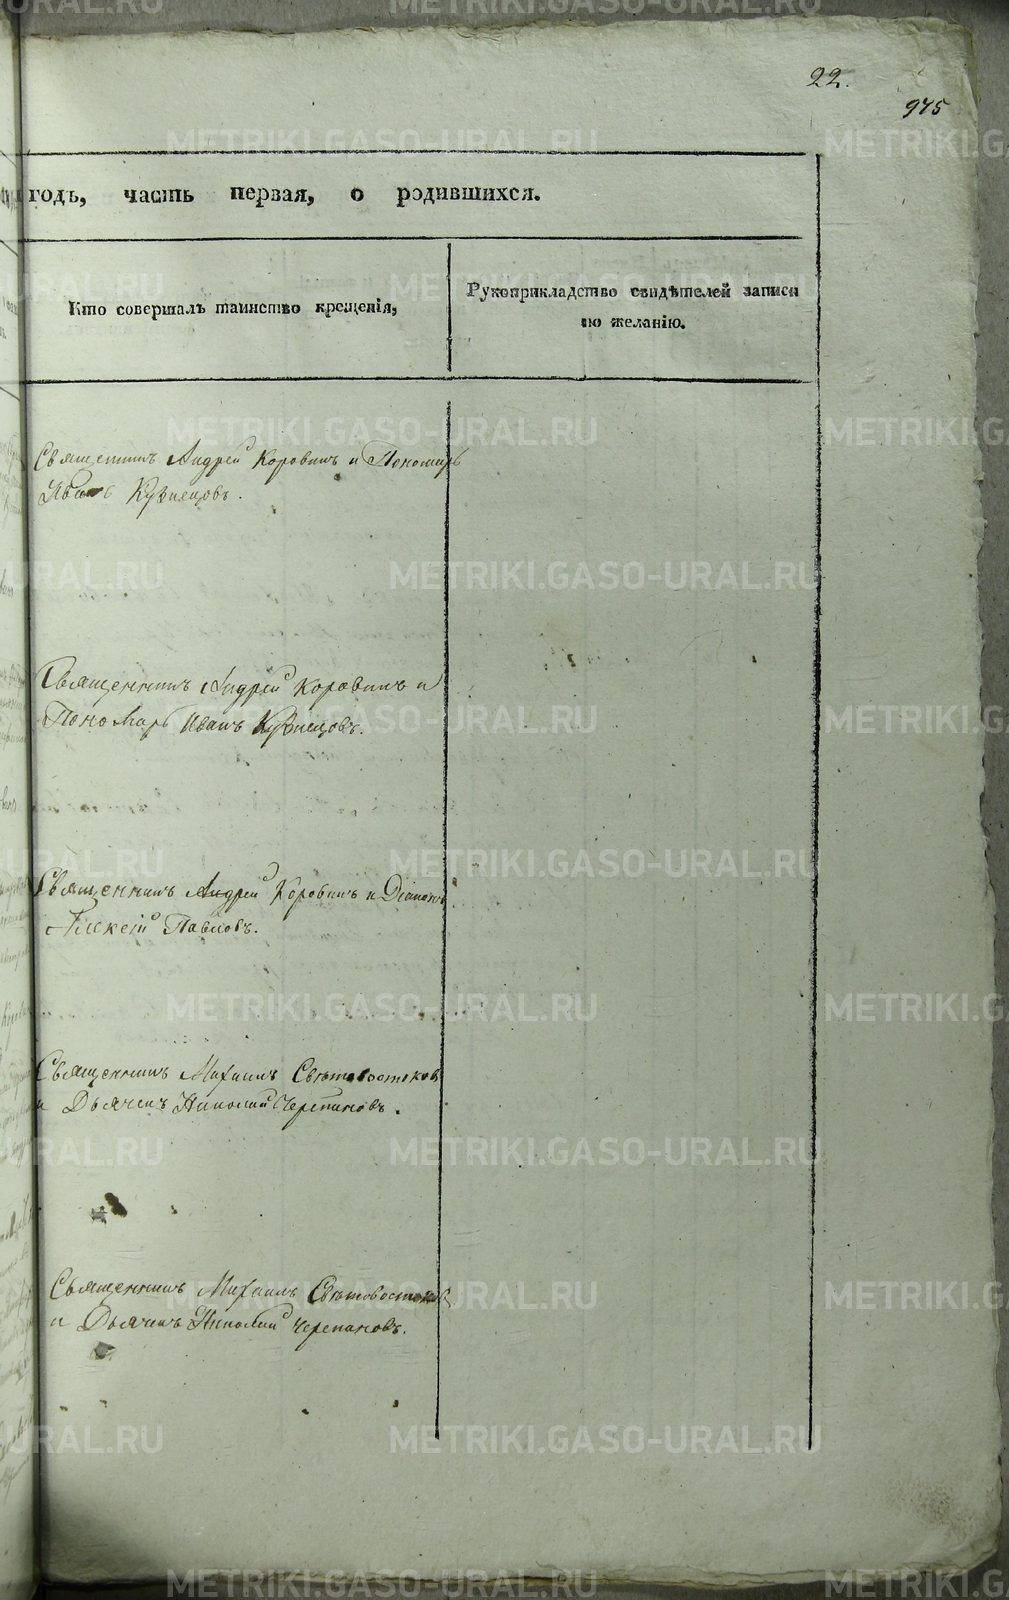 22.
975
годъ, часть первая, о родившихся.
Кто совершалъ таинство крещенія,
Рукоприкладство свидѣтелей записи
по желанію.
Священникъ Андрей Коровинъ и Пономарь
Иванъ Кузнецовъ.
Священникъ Андрей Коровинъ и
Пономарь Иванъ Кузнецовъ.
Священникъ Андрей Коровинъ и Діаконъ
Алексій Павловъ.
Священникъ Михаилъ Свѣтовостоковъ
и Дьячекъ Николай Черепановъ.
Священникъ Михаилъ Свѣтовостоковъ
и Дьячекъ Николай Черепановъ.
METRIKI.GASO-URAL.RU